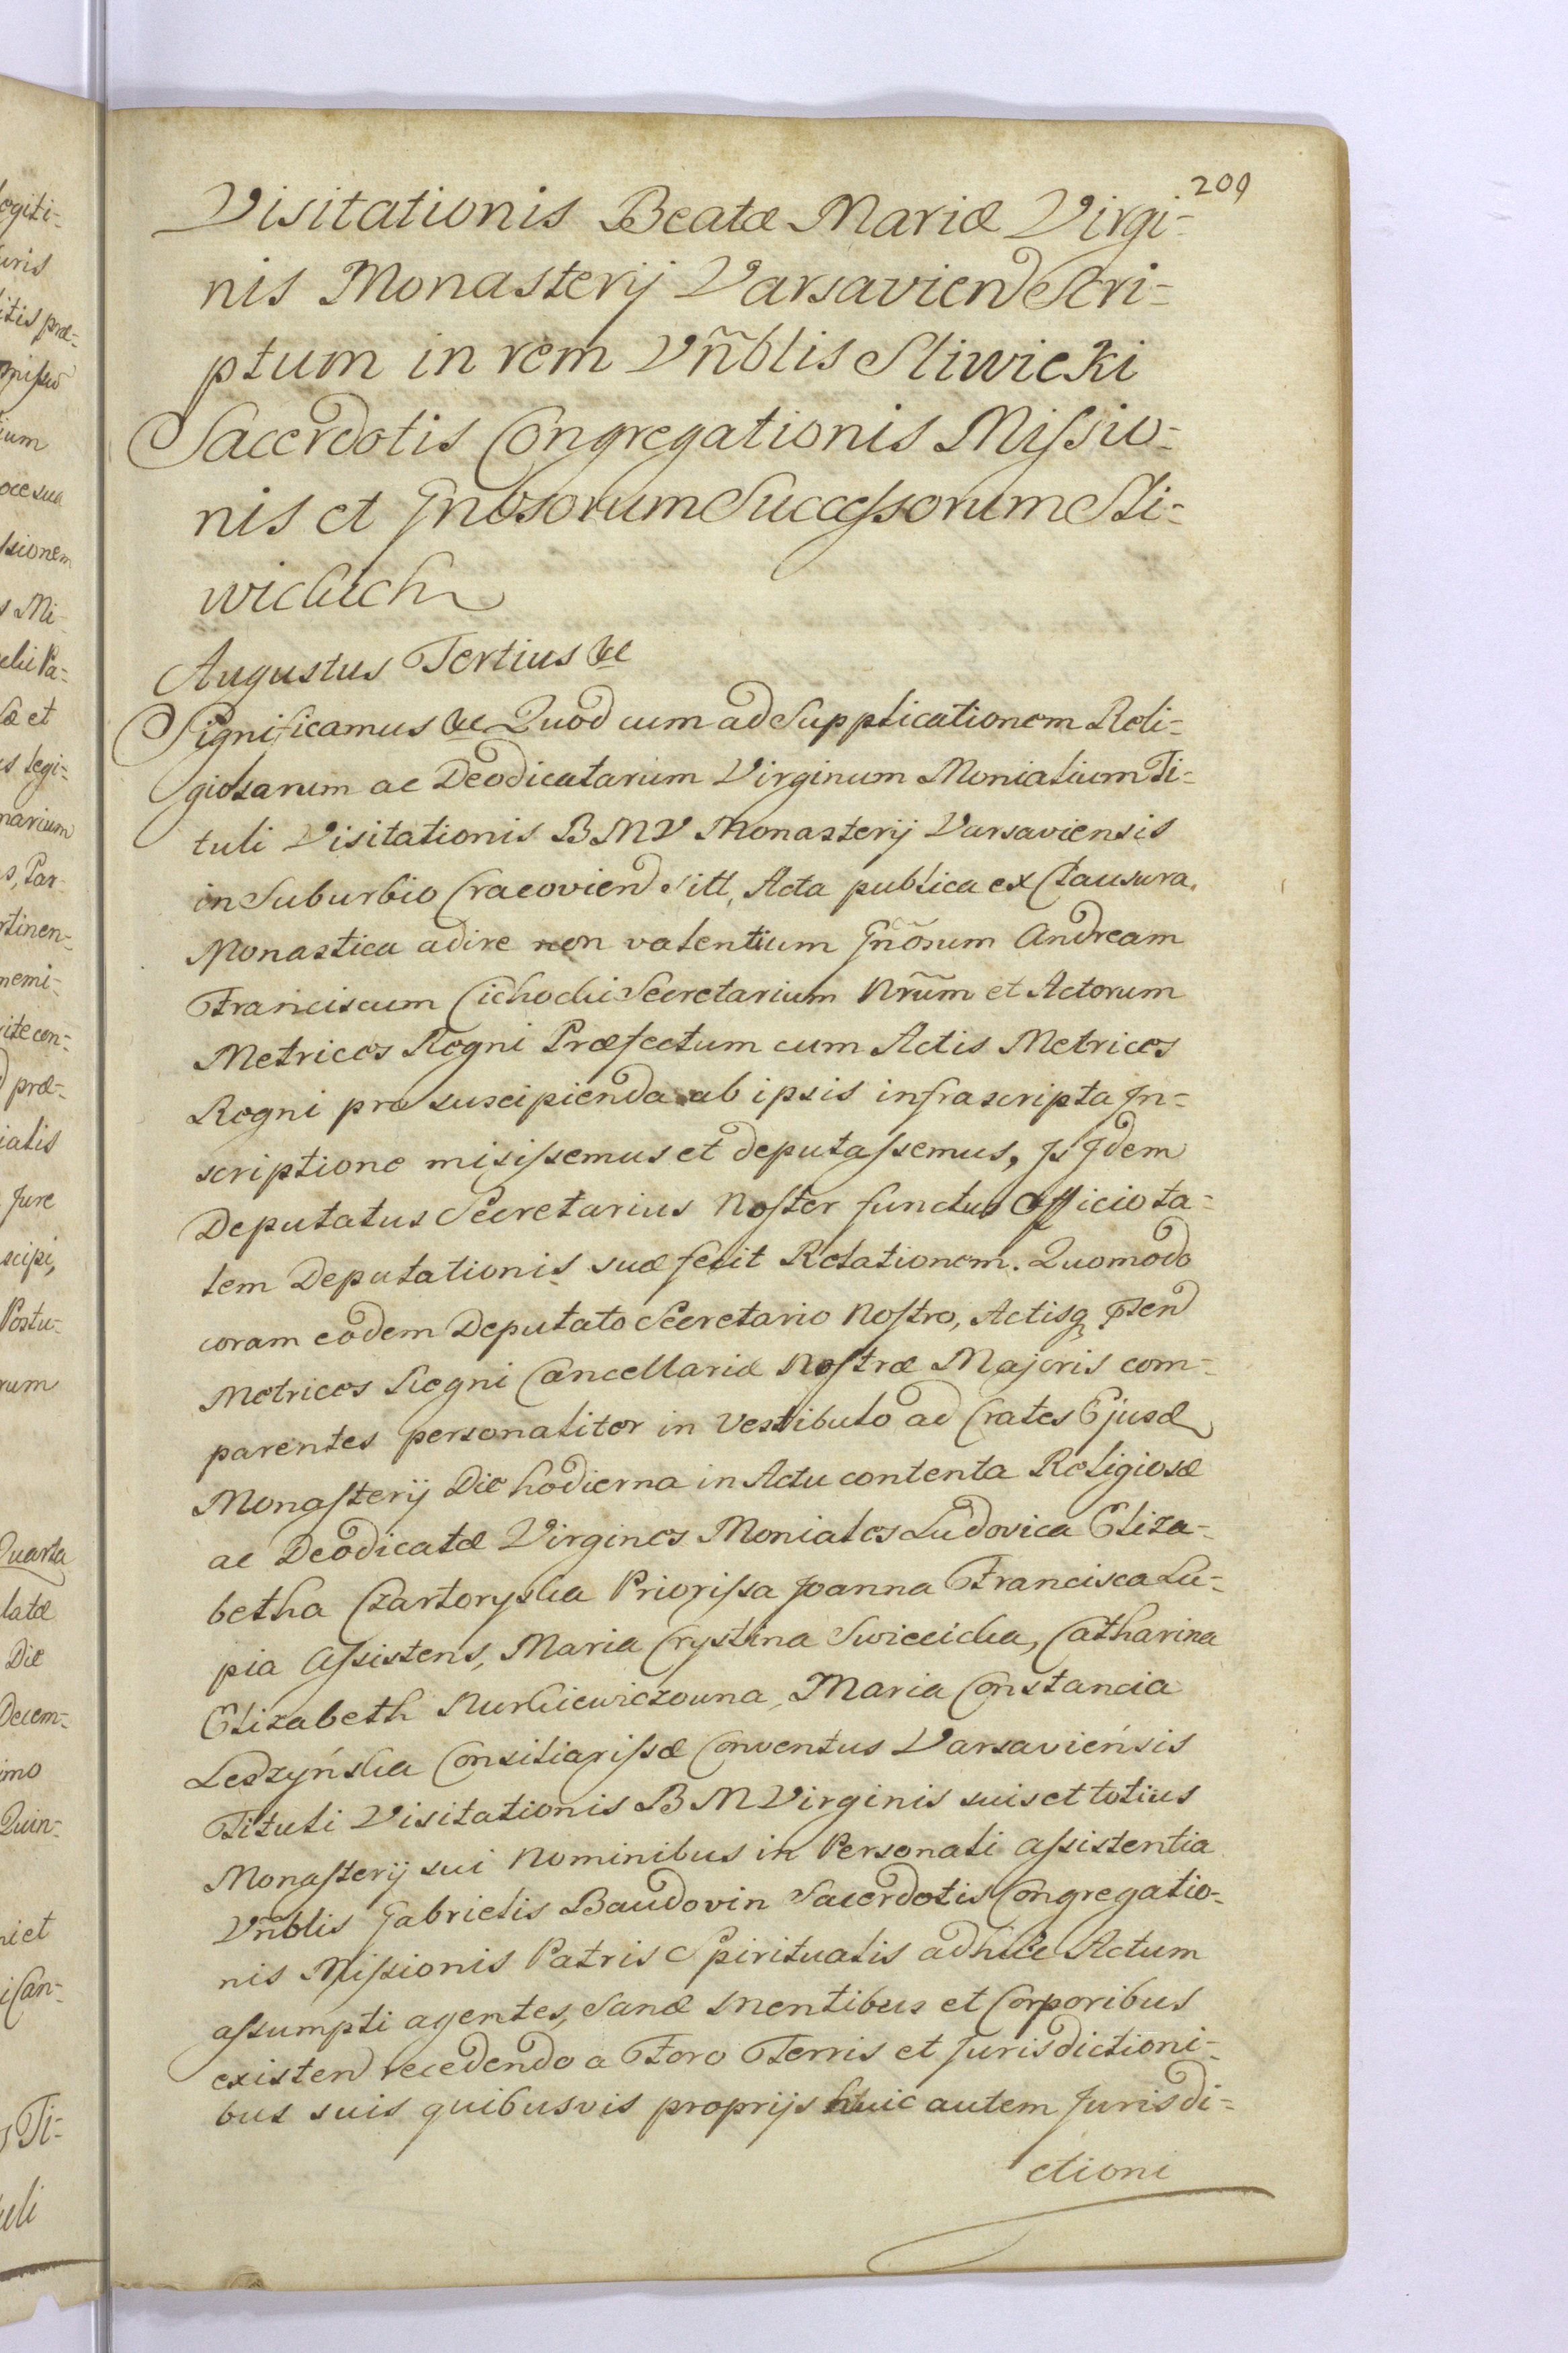 209
Visitationis Beatæ Mariæ Virgi=
nis Monasterij Varsaviend Scri=
ptum in rem Vñblis Sliwicki
Sacerdotis Congregationis Missio=
nis et Gnosorum Successorum Sli=
wickich
Augustus Tertius &c
Significamus &c Quod cum ad Supplicationem Reli=
giosarum ac Deodicatarum Virginum Monialium Ti=
tuli Visitationis BMV Monasterij Varsaviensis
in Suburbio Cracoviend sitt, Acta publica ex Clausura
Monastica adire non valentium Gñosum Andream
Franciscum Cichocki Secretarium Nrũm et Actorum
Metrices Regni Præfectum cum Actis Metrices
Regni pro suscipienda ab ipsis infrascripta In=
scriptione misissemus et deputassemus, Is Idem
Deputatus Secretarius Noster functus Officio ta=
lem Deputationis suæ fecit Relationem. Quomodo
coram eodem Deputato Secretario Nostro, Actisq pñend
Metrices Regni Cancellariæ Nostræ Majoris com=
parentes personaliter in Vestibulo ad Crates Ejusd
Monasterij Die hodierna in Actu contenta Religiosæ
ac Deodicatæ Virgines Moniales Ludovica Eliza=
betha Czartoryska Priorissa Joanna Francisca Lu=
pia Assistens, Maria Crystina Swiecicka, Catharina
Elizabeth Kurkiewiczouna, Maria Constancia
Ledzyńska Consiliarissæ Conventus Varsavieńsis
Tituli Visitationis B M Virginis suis et totius
Monasterij sui Nominibus in Personali assistentia
Vñblis Gabrielis Baudovin Sacerdotis Congregatio=
nis Missionis Patris Spiritualis ad hũc Actum
assumpti agentes, Sanæ mentibus et Corporibus
existend recedendo a Foro Terris et Jurisdictioni=
bus suis quibusvis proprijs huic autem Jurisdi=
ctioni